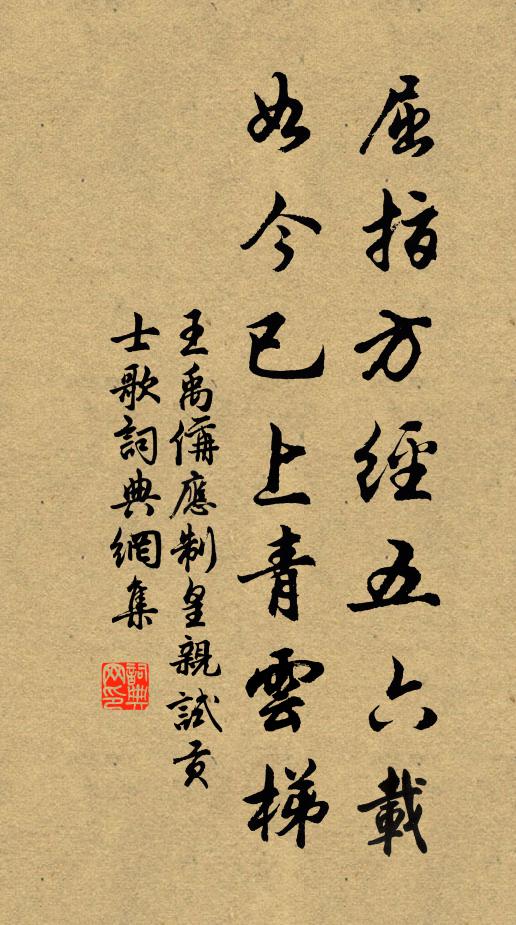 屈指方經五六載
如今已上青雲梯
王禹偁應制皇親試貢
士歌詞典網集
詞典
网印